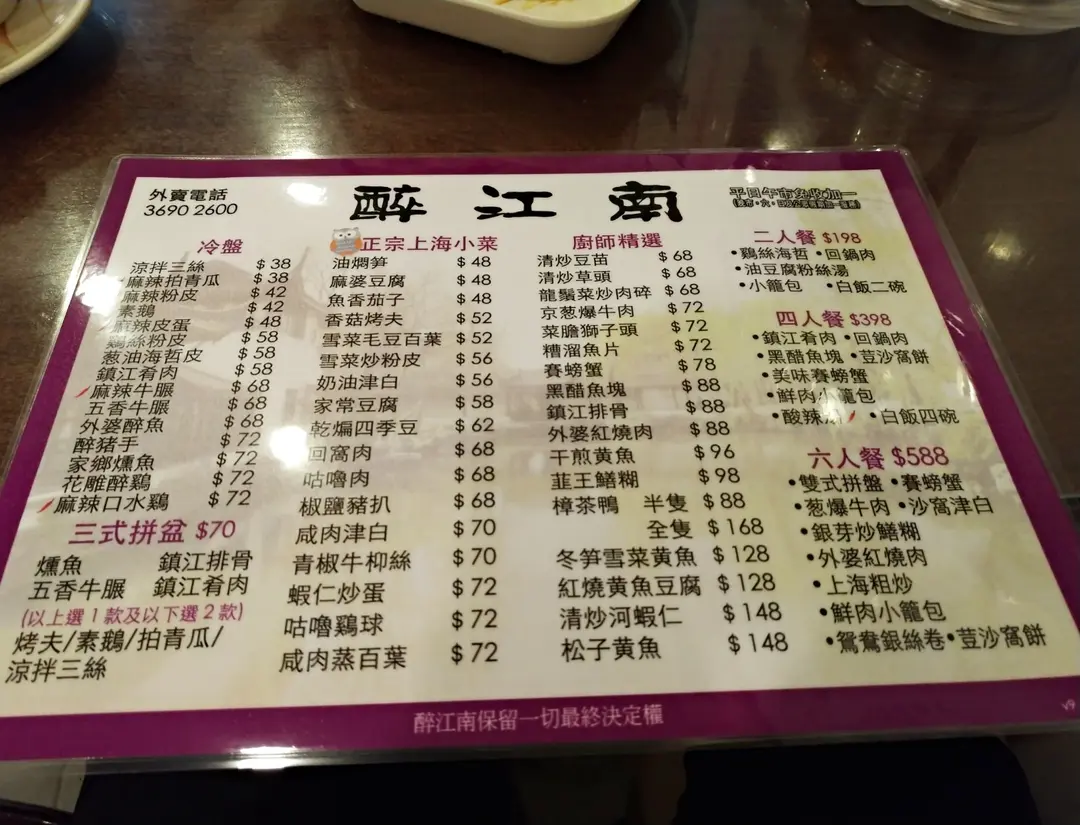 外賣電話
3690 2600
醉江南
平日午市免收加一
冷盤
涼拌三絲 $38
麻辣拍青瓜 $38
麻辣粉皮 $42
素鵝 $42
麻辣皮蛋 $48
鷄絲粉皮 $58
葱油海哲皮 $58
鎮江肴肉 $58
麻辣牛𦟌 $68
五香牛𦟌 $68
外婆醉魚 $68
醉猪手 $72
家鄉燻魚 $72
花雕醉鷄 $72
麻辣口水鷄 $72
三式拼盆 $70
燻魚 鎮江排骨
五香牛𦟌 鎮江肴肉
(以上選1款及以下選2款)
烤夫/素鵝/拍青瓜/
涼拌三絲
正宗上海小菜
油燜笋 $48
麻婆豆腐 $48
魚香茄子 $48
香菇烤夫 $52
雪菜毛豆百葉 $52
雪菜炒粉皮 $56
奶油津白 $56
家常豆腐 $58
乾煸四季豆 $62
回窩肉 $68
咕嚕肉 $68
椒鹽豬扒 $68
咸肉津白 $70
青椒牛柳絲 $70
蝦仁炒蛋 $72
咕嚕鷄球 $72
咸肉蒸百葉 $72
廚師精選
清炒豆苗 $68
清炒草頭 $68
龍鬚菜炒肉碎 $68
京葱爆牛肉 $72
菜膽獅子頭 $72
糟溜魚片 $72
賽螃蟹 $78
黑醋魚塊 $88
鎮江排骨 $88
外婆紅燒肉 $88
干煎黄魚 $96
韮王鱔糊 $98
樟茶鴨 半隻 $88
全隻 $168
冬笋雪菜黄魚 $128
紅燒黄魚豆腐 $128
清炒河蝦仁 $148
松子黄魚 $148
二人餐 $198
•鷄絲海哲 •回鍋肉
•油豆腐粉絲湯
•小籠包 •白飯二碗
四人餐 $398
•鎮江肴肉 •回鍋肉
•黑醋魚塊 •荳沙窩餅
•美味賽螃蟹
•鮮肉小籠包
•酸辣湯 •白飯四碗
六人餐 $588
•雙式拼盤 •賽螃蟹
•葱爆牛肉 •沙窩津白
•銀芽炒鱔糊
•外婆紅燒肉
•上海粗炒
•鮮肉小籠包
•鴛鴦銀絲卷 •荳沙窩餅
醉江南保留一切最終決定權
V9